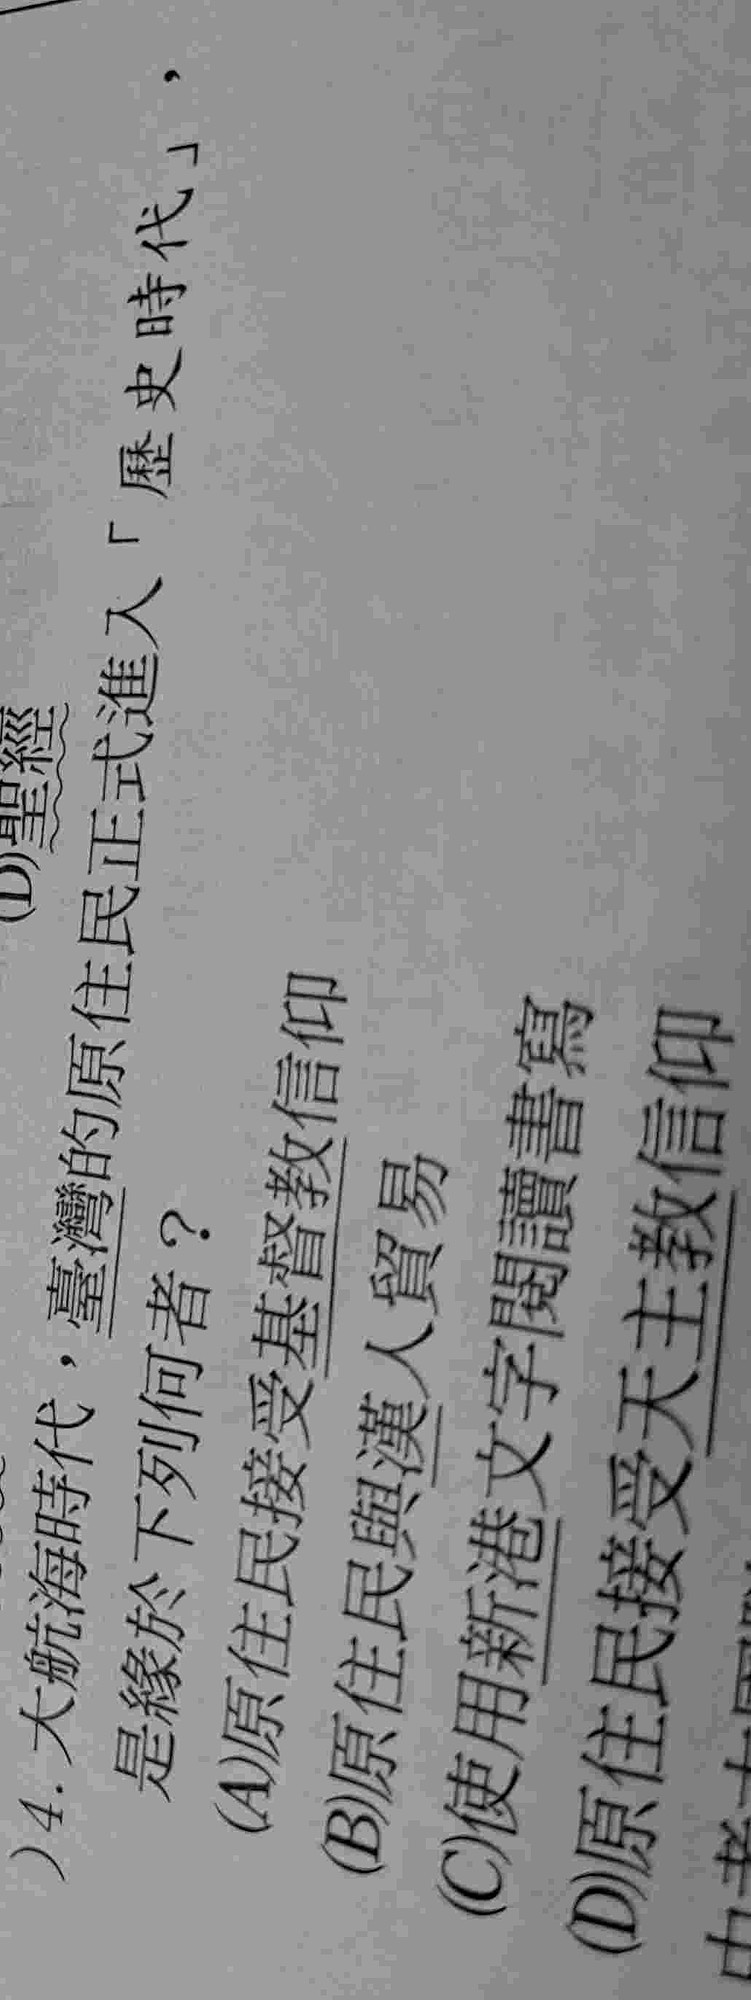 (D)聖經
)4. 大航海時代，臺灣的原住民正式進入「歷史時代」，
是緣於下列何者？
(A)原住民接受基督教信仰
(B)原住民與漢人貿易
(C)使用新港文字閱讀書寫
(D)原住民接受天主教信仰